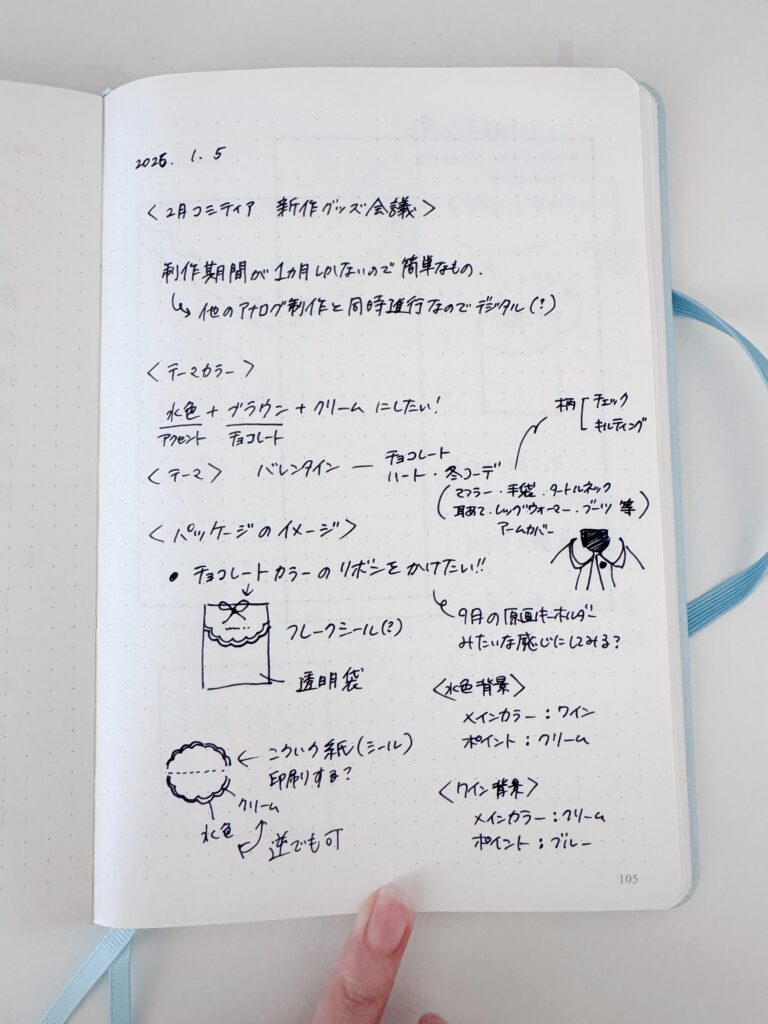 2026. 1. 5
〈2月コミティア 新作グッズ会議〉
制作期間が1カ月しかないので簡単なもの.
↳ 他のアナログ制作と同時進行なのでデジタル(?)
〈テーマカラー〉
水色 + ブラウン + クリーム にしたい!
アクセント チョコレート
〈テーマ〉 バレンタイン — チョコレート
ハート・冬コーデ
柄 チェック
キルティング
(マフラー・手袋・タートルネック
耳あて・レッグウォーマー・ブーツ 等)
アームカバー
〈パッケージのイメージ〉
● チョコレートカラーのリボンをかけたい!!
フレークシール(?)
透明袋
↳ 9月の原画キーホルダー
みたいな感じにしてみる?
← こういう紙(シール)
印刷する?
クリーム
水色
逆でも可
〈水色背景〉
メインカラー:ワイン
ポイント:クリーム
〈ワイン背景〉
メインカラー:クリーム
ポイント:ブルー
105